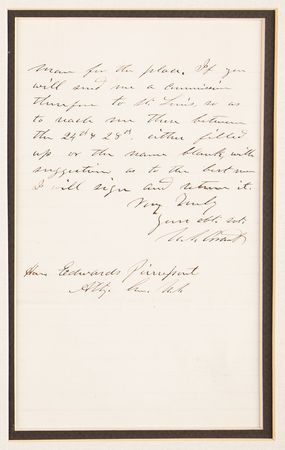 name for the place. If you
will send me a commission
therefore to St. Louis, so as
to reach me there between
the 24th & 28th either filled
up or the name blank, with
suggestion as to the best man
I will sign and return it.
Very Truly
Your obt. svt.
U. S. Grant
Hon. Edwards Pierrepont
Atty. Gen. U.S.